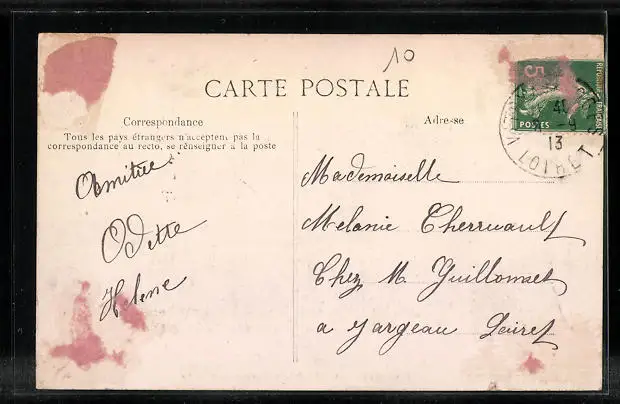 10
CARTE POSTALE
Correspondance
Tous les pays étrangers n'acceptent pas la
correspondance au recto, se renseigner à la poste
Adresse
5c
POSTES
RÉPUBLIQUE FRANÇAISE
13
LOIRET
Odette
Helene
Mademoiselle
Melanie Cherruault
Chez M Guillomet
a Jargeau Loiret